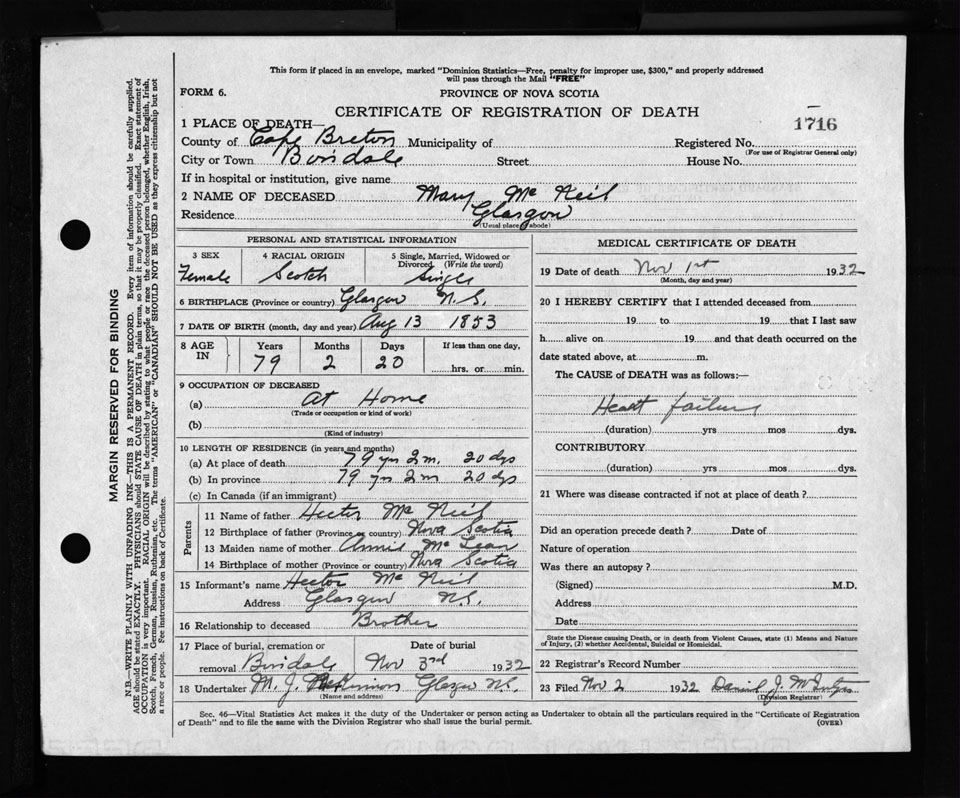 This form if placed in an envelope, marked "Dominion Statistics—Free, penalty for improper use, $300," and properly addressed
will pass through the Mail "FREE"
FORM 6. PROVINCE OF NOVA SCOTIA
CERTIFICATE OF REGISTRATION OF DEATH
1716
1 PLACE OF DEATH—
County of Cape Breton Municipality of Registered No.
(For use of Registrar General only)
City or Town Boisdale Street House No.
If in hospital or institution, give name
2 NAME OF DECEASED Mary Mc Neil
Residence Glasgow
(Usual place of abode)
PERSONAL AND STATISTICAL INFORMATION
3 SEX 4 RACIAL ORIGIN 5 Single, Married, Widowed or
Divorced. (Write the word)
Female Scotch Single
6 BIRTHPLACE (Province or country) Glasgow N.S.
7 DATE OF BIRTH (month, day and year) Aug 13 1853
8 AGE IN Years Months Days If less than one day,
79 2 20 hrs. or min.
9 OCCUPATION OF DECEASED
(a) At Home
(Trade or occupation or kind of work)
(b)
(Kind of industry)
10 LENGTH OF RESIDENCE (in years and months)
(a) At place of death 79 yrs 2 m. 20 dys
(b) In province 79 yrs 2 m 20 dys
(c) In Canada (if an immigrant)
Parents
11 Name of father Hector Mc Neil
12 Birthplace of father (Province or country) Nova Scotia
13 Maiden name of mother Annie Mc Lean
14 Birthplace of mother (Province or country) Nova Scotia
15 Informant's name Hector Mc Neil
Address Glasgow N.S.
16 Relationship to deceased Brother
17 Place of burial, cremation or Date of burial
removal Boisdale Nov 3rd 1932
18 Undertaker M. J. McKinnon Glasgow N.S.
(Name and address)
MEDICAL CERTIFICATE OF DEATH
19 Date of death Nov 1st 1932
(Month, day and year)
20 I HEREBY CERTIFY that I attended deceased from
19 to 19 that I last saw
h alive on 19 and that death occurred on the
date stated above, at m.
The CAUSE of DEATH was as follows:—
Heart failure
(duration) yrs mos dys.
CONTRIBUTORY
(duration) yrs mos dys.
21 Where was disease contracted if not at place of death?
Did an operation precede death? Date of
Nature of operation
Was there an autopsy?
(Signed) M.D.
Address
Date
State the Disease causing Death, or in death from Violent Causes, state (1) Means and Nature
of Injury, (2) whether Accidental, Suicidal or Homicidal.
22 Registrar's Record Number
23 Filed Nov 2 1932 Daniel J.
(Division Registrar)
Sec. 46—Vital Statistics Act makes it the duty of the Undertaker or person acting as Undertaker to obtain all the particulars required in the "Certificate of Registration
of Death" and to file the same with the Division Registrar who shall issue the burial permit. (OVER)
MARGIN RESERVED FOR BINDING
N.B.—WRITE PLAINLY WITH UNFADING INK—THIS IS A PERMANENT RECORD. Every item of information should be carefully supplied.
AGE should be stated EXACTLY. PHYSICIANS should STATE CAUSE OF DEATH in plain terms, so that it may be properly classified. Exact statement of
OCCUPATION is very important. RACIAL ORIGIN will be described by stating to what people or race the deceased person belonged, whether English, Irish,
Scotch, French, German, Russian, Ruthenian, etc. The terms "AMERICAN" or "CANADIAN" SHOULD NOT BE USED as they express citizenship but not
a race or people. See instructions on back of Certificate.